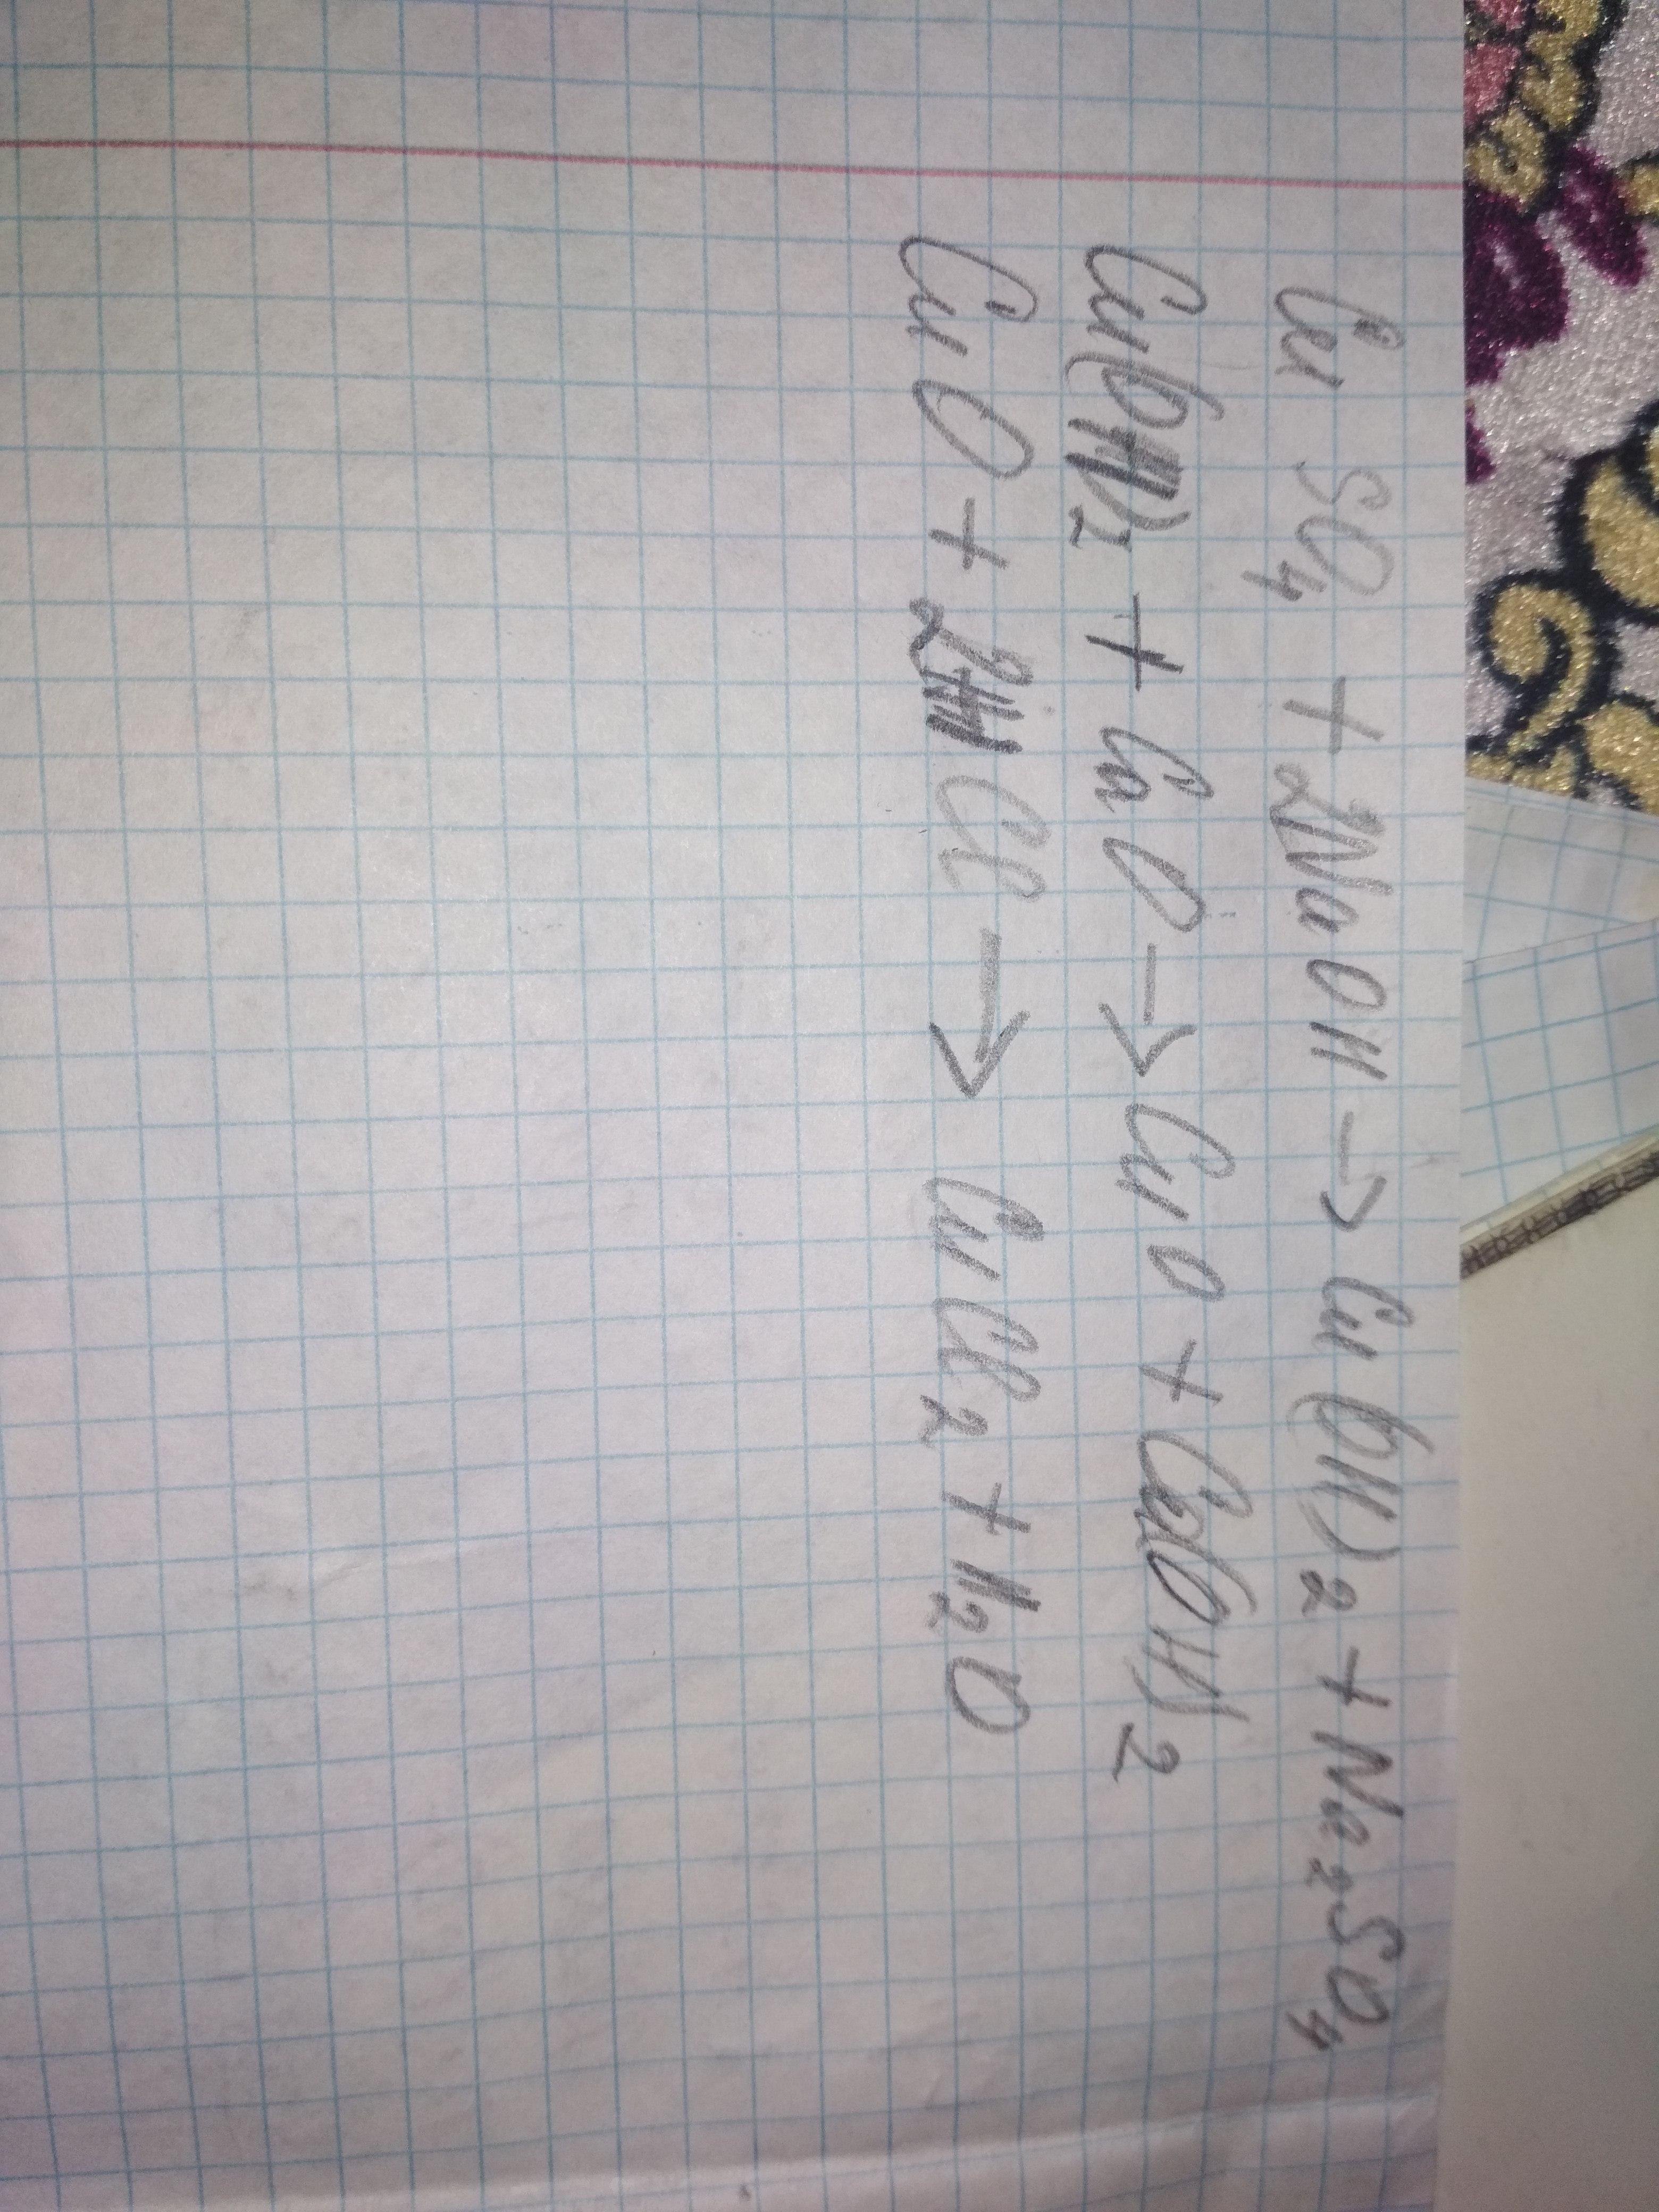 CuSO₄ + 2NaOH → Cu(OH)₂ + Na₂SO₄
Cu(OH)₂ + CaO → CuO + Ca(OH)₂
CuO + 2HCl → CuCl₂ + H₂O